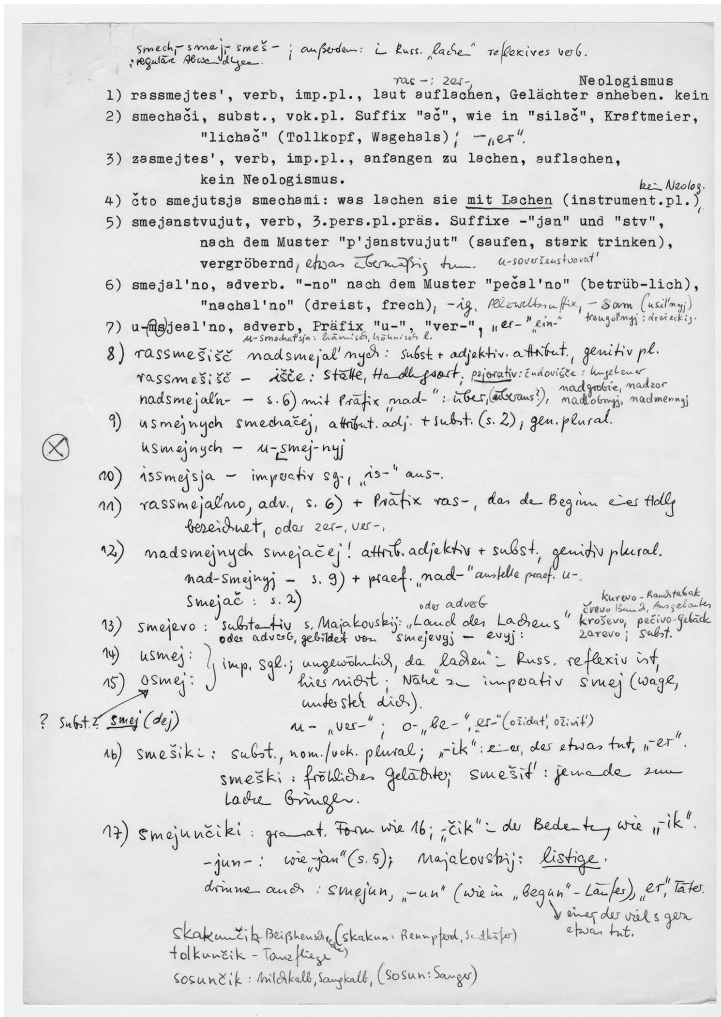 smech-, smej-, smeš- ; außerdem: i Russ. "lachen" reflexives verb.
reguläre
ras-: zer-, Neologismus
1) rassmejtes', verb, imp.pl., laut auflachen, Gelächter anheben. kein
2) smechači, subst., vok.pl. Suffix "ač", wie in "silač", Kraftmeier,
"lichač" (Tollkopf, Wagehals); -"er".
3) zasmejtes', verb, imp.pl., anfangen zu lachen, auflachen,
kein Neologismus.
kein Neolog.
4) čto smejutsja smechami: was lachen sie mit Lachen (instrument.pl.),
5) smejanstvujut, verb, 3.pers.pl.präs. Suffixe -"jan" und "stv",
nach dem Muster "p'janstvujut" (saufen, stark trinken),
vergröbernd, etwas übermäßig tun. u-soveršenstvovat'
6) smejal'no, adverb. "-no" nach dem Muster "pečal'no" (betrüb-lich),
"nachal'no" (dreist, frech), -ig, Allerweltssuffix, -sam (usil'nyj)
treugol'nyj: dreieckig.
7) u-smjeal'no, adverb, Präfix "u-", "ver-", "er-" "ein-"
u-smechat'sja: hämisch, höhnisch l.
8) rassmešišč nadsmejal'nych: subst + adjektiv. attribut, genitiv pl.
rassmešišč - išče: Stätte, Handlgsort, pejorativ: čudovišče: Ungeheuer
nadsmejaln- - s.6) mit Präfix "nad-": über, (überaus?), nadgrobie, nadzor
nadlobnyj, nadmennyj
9) usmejnych smechačej, attribut. adj. + subst. (s.2), gen. plural.
usmejnych - u-smej-nyj
10) issmejsja - imperativ sg., "is-" aus-.
11) rassmejal'no, adv., s.6) + Präfix ras-, das den Beginn einer Hdlg
bezeichnet, oder zer-, ver-.
12) nadsmejnych smejačej! attrib. adjektiv + subst., genitiv plural.
nad-smejnyj - s.9) + praef. "nad-" anstelle praef. u-.
smejač: s.2)
oder adverb
kurevo - Rauchtabak
13) smejevo: substantiv s. Majakovskij: "Land des Lachens" kroševo, pečivo-Gebäck
oder adverb, gebildet von smejevyj - evyj: zarevo; subst.
14) usmej: imp. sgl.; ungewöhnlich, da "lachen" i Russ. reflexiv ist,
15) osmej: hier nicht; Nähe zu imperativ smej (wage,
untersteh dich).
? Subst.? smej (dej) u- "ver-"; o- "be-", "er-" (ožidat', oživit')
16) smešiki: subst., nom./vok. plural; "-ik": einer, der etwas tut, "-er".
smeški: fröhliches Gelächter; smešit': jemanden zum
Lachen bringen.
17) smejunčiki: gramat. Form wie 16; "-čik" i der Bedeutung wie "-ik".
-jun-: wie "jan" (s.5); Majakovskij: listige.
drinnen auch: smejun, "-un" (wie in "begun" - Läufer), "er", Täter.
einer der viel s gern
etwas tut.
skakunčik - (skakun: Rennpferd, Sandkäfer)
tolkunčik - Tanzfliege
sosunčik: Milchkalb, Saugkalb, (sosun: Sauger)